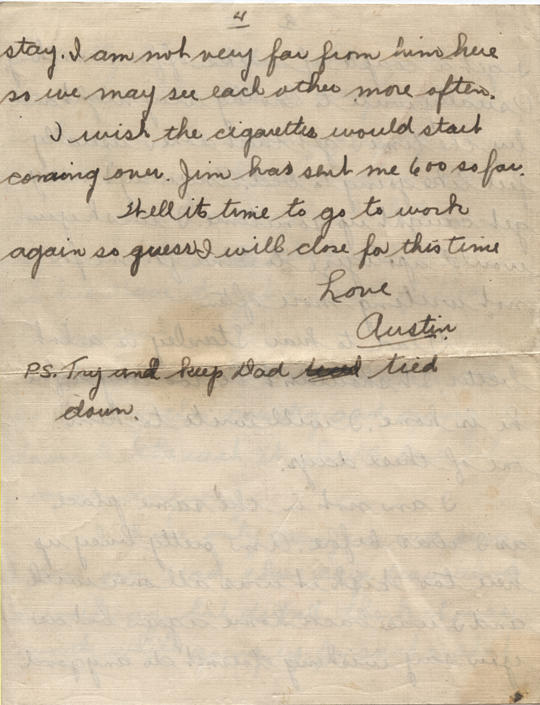 4
stay. I am not very far from him here
so we may see each other more often.
I wish the cigarettes would start
coming over. Jim has sent me 600 so far.
Well its time to go to work
again so guess I will close for this time
Love
Austin
P.S. Try and keep Dad tied
down.